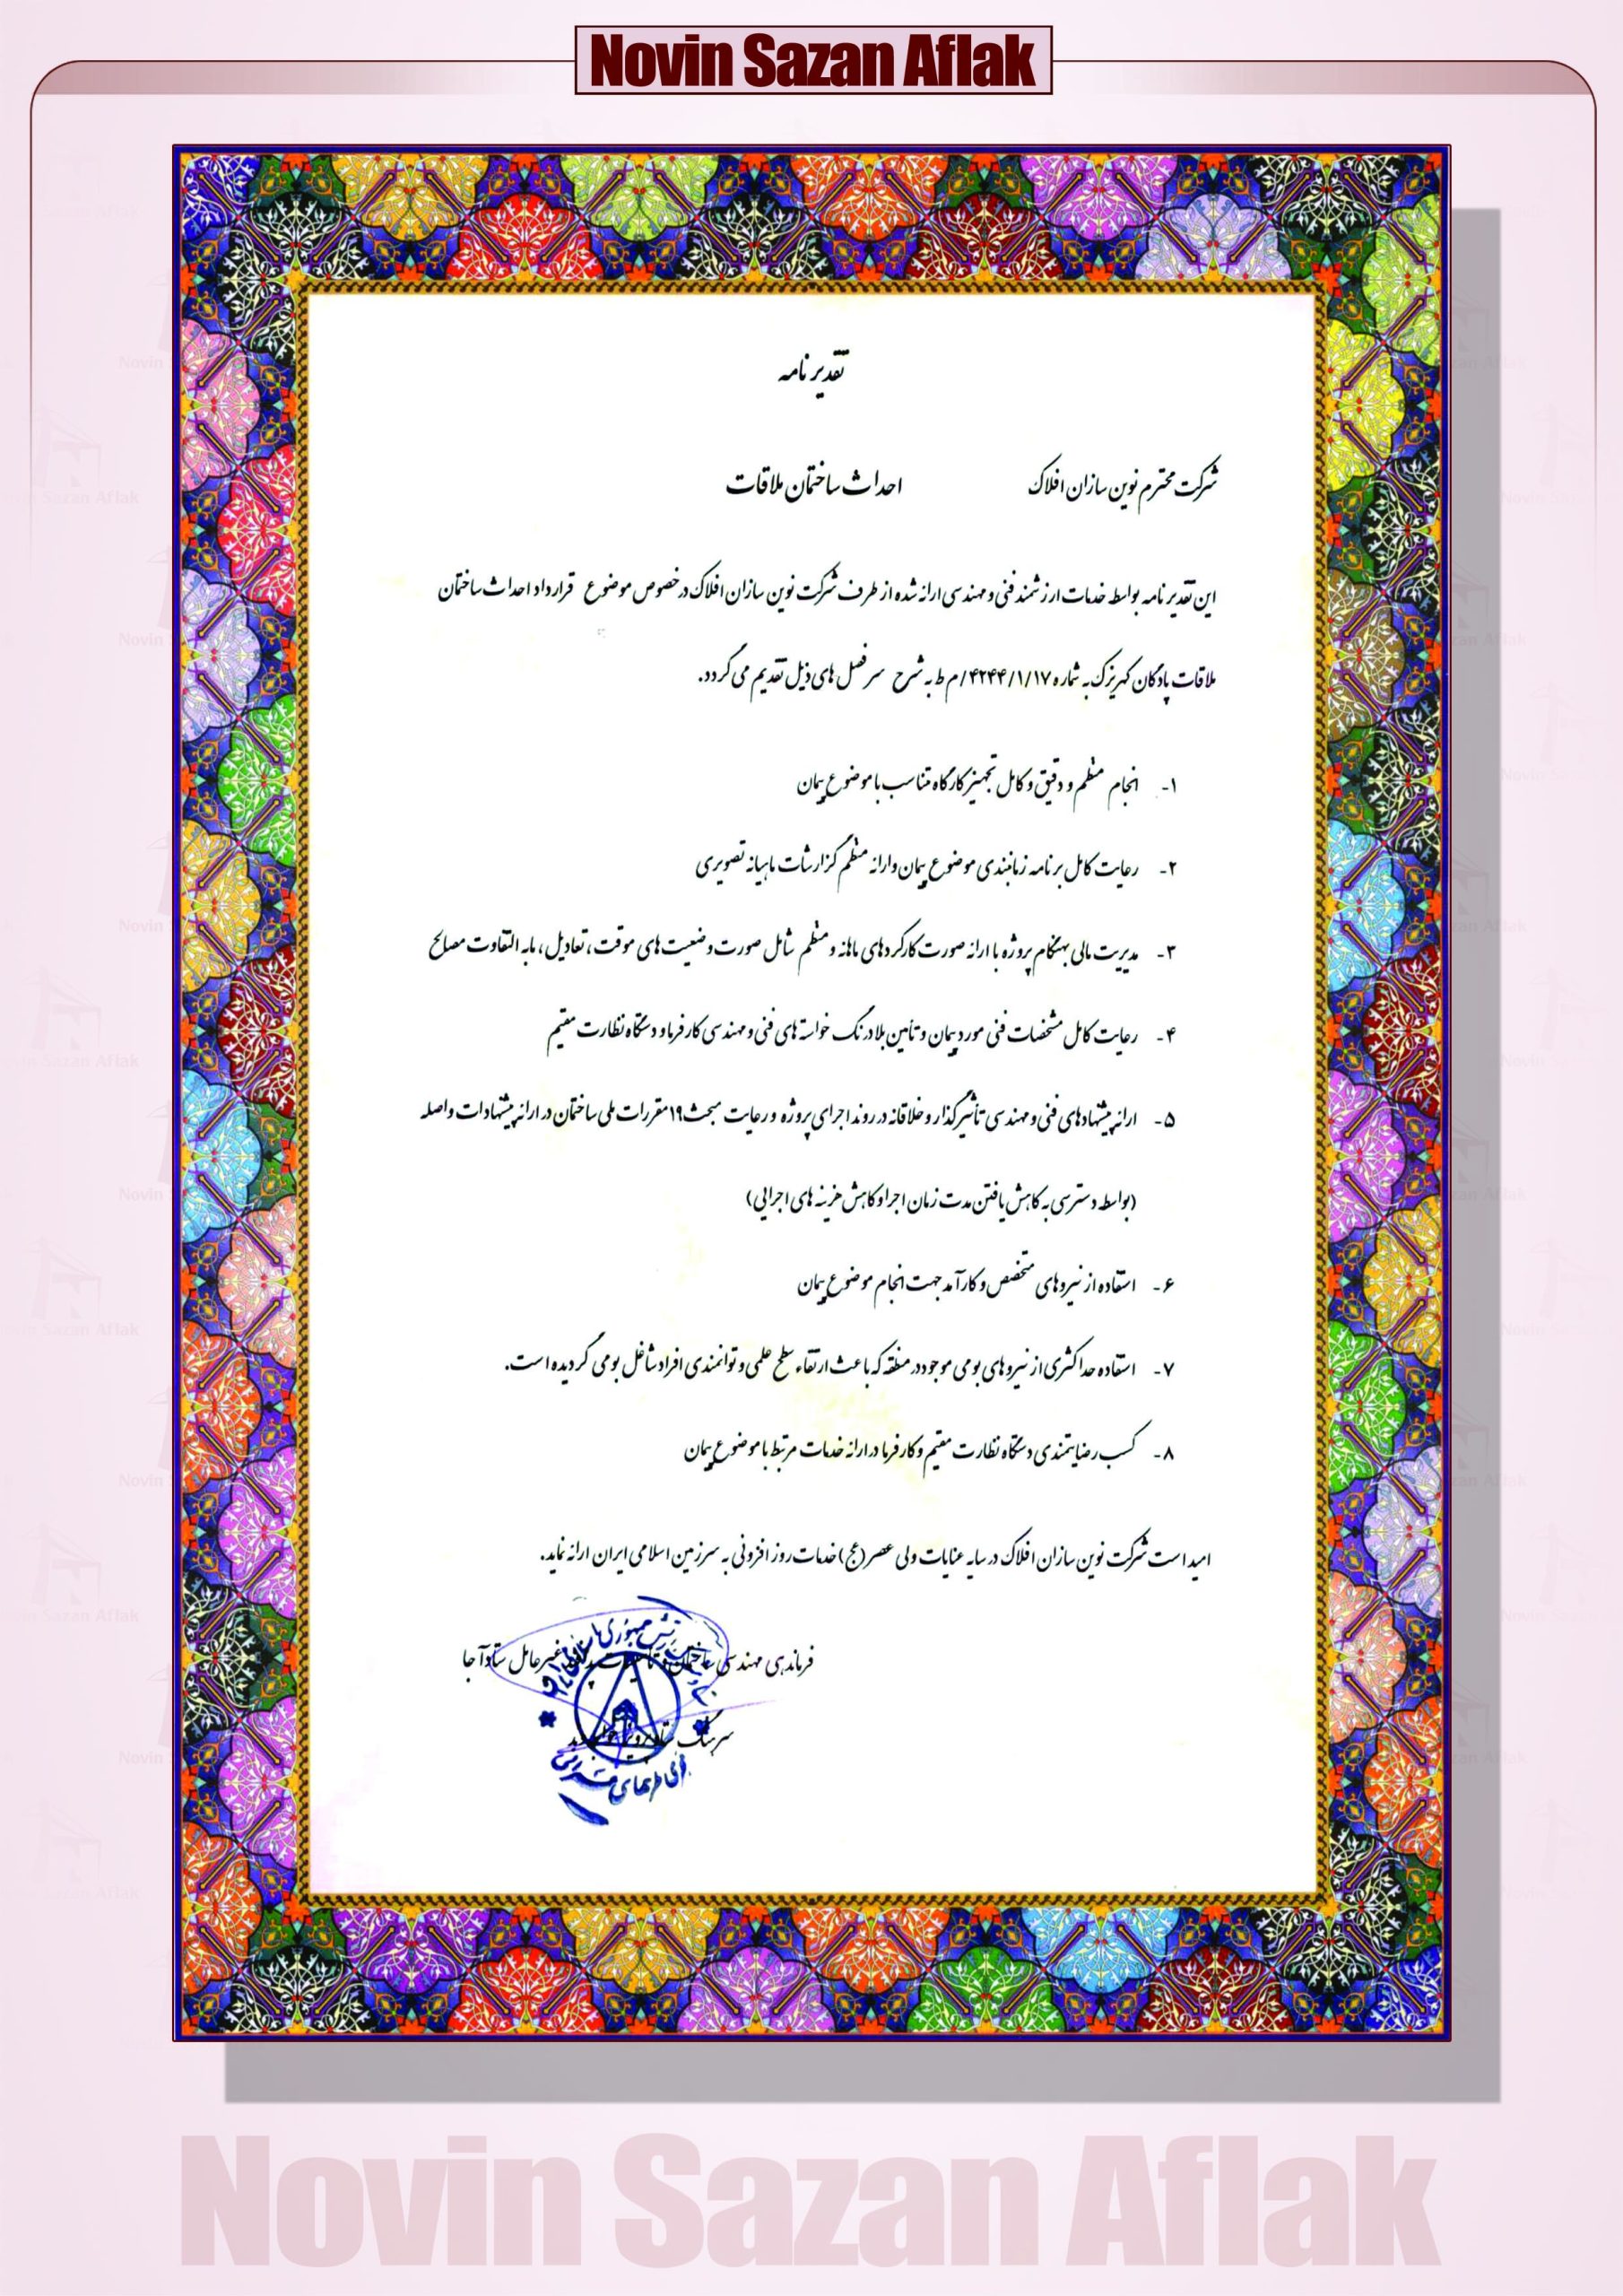 Novin Sazan Aflak
تقدیر نامه
شرکت محترم نوین سازان افلاک احداث ساختمان ملاقات
این تقدیر نامه بواسطه خدمات ارزشمند فنی و مهندسی ارائه شده از طرف شرکت نوین سازان افلاک در خصوص موضوع قرارداد احداث ساختمان
ملاقات پادگان کهریزک به شماره ۴۲۴۴/۱/۱۷/م ط به شرح سرفصل های ذیل تقدیم می گردد.
۱- انجام منظم و دقیق و کامل تجهیز کارگاه متناسب با موضوع پیمان
۲- رعایت کامل برنامه زمانبندی موضوع پیمان و ارائه منظم گزارشات ماهیانه تصویری
۳- مدیریت مالی بهنگام پروژه با ارائه صورت کارکردهای ماهانه و منظم شامل صورت وضعیت های موقت، تعادیل، مابه التفاوت مصالح
۴- رعایت کامل مشخصات فنی مورد پیمان و تأمین بلادرنگ خواسته های فنی و مهندسی کارفرما و دستگاه نظارت مقیم
۵- ارائه پیشنهادهای فنی و مهندسی تأثیرگذار و خلاقانه در روند اجرای پروژه و رعایت مبحث ۱۹ مقررات ملی ساختمان در ارائه پیشنهادات واصله
(بواسطه دسترسی به کاهش یافتن مدت زمان اجرا و کاهش هزینه های اجرایی)
۶- استفاده از نیروهای متخصص و کارآمد جهت انجام موضوع پیمان
۷- استفاده حداکثری از نیروهای بومی موجود در منطقه که باعث ارتقاء سطح علمی و توانمندی افراد شاغل بومی گردیده است.
۸- کسب رضایتمندی دستگاه نظارت مقیم و کارفرما در ارائه خدمات مرتبط با موضوع پیمان
امید است شرکت نوین سازان افلاک در سایه عنایات ولی عصر (عج) خدمات روز افزونی به سرزمین اسلامی ایران ارائه نماید.
فرماندهی مهندسی ساختمان و تأسیسات پدافند غیرعامل ستاد آجا
سرهنگ ستاد پرویز
Novin Sazan Aflak